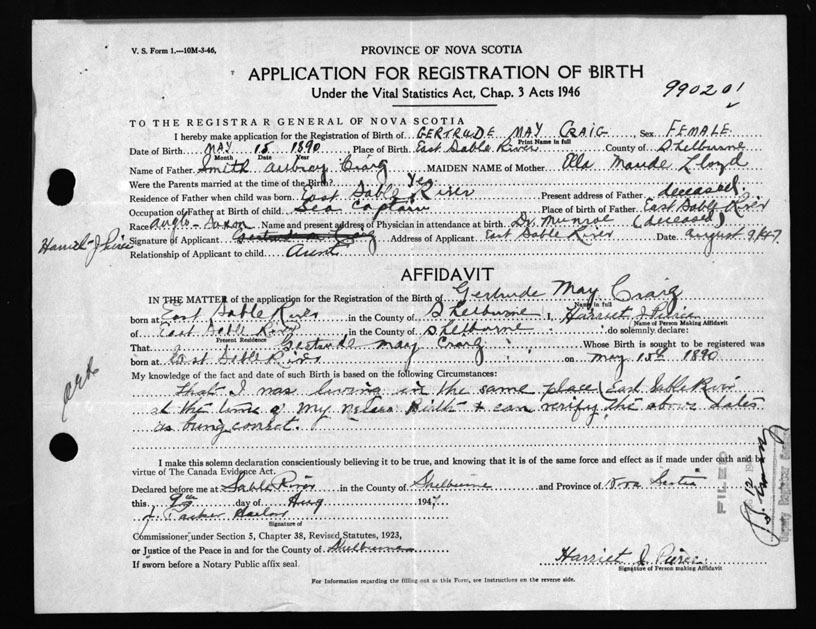 V. S. Form 1.—10M-3-46.
PROVINCE OF NOVA SCOTIA
APPLICATION FOR REGISTRATION OF BIRTH
Under the Vital Statistics Act, Chap. 3 Acts 1946
990201
TO THE REGISTRAR GENERAL OF NOVA SCOTIA
I hereby make application for the Registration of Birth of GERTRUDE MAY CRAIG, Sex FEMALE
Print Name in full
Date of Birth MAY 15 1890 Place of Birth East Sable River County of Shelburne
Month Date Year
Name of Father Smith Aubrey Craig MAIDEN NAME of Mother Ella Maude Lloyd
Were the Parents married at the time of the Birth? Yes
Residence of Father when child was born East Sable River Present address of Father deceased
Occupation of Father at Birth of child Sea Captain Place of birth of Father East Sable River
Race Anglo-Saxon Name and present address of Physician in attendance at birth Dr. Munroe (deceased)
Harriet J Pierce
Signature of Applicant Gertrude Craig Address of Applicant East Sable River Date August 9/47
Relationship of Applicant to child Aunt
AFFIDAVIT
IN THE MATTER of the application for the Registration of the Birth of Gertrude May Craig
Name in full
born at East Sable River in the County of Shelburne I, Harriet J Pierce
Name of Person Making Affidavit
of East Sable River in the County of Shelburne do solemnly declare:
Present Residence
That Gertrude May Craig Whose Birth is sought to be registered was
born at East Sable River on May 15th 1890
My knowledge of the fact and date of such Birth is based on the following Circumstances:
That I was living in the same place (East Sable River
at the time of my nieces Birth & can verify the above dates
as being correct.
I make this solemn declaration conscientiously believing it to be true, and knowing that it is of the same force and effect as if made under oath and by
virtue of The Canada Evidence Act.
Declared before me at Sable River in the County of Shelburne and Province of Nova Scotia
this 9th day of Aug 1947
J Parker
Signature of
Commissioner under Section 5, Chapter 38, Revised Statutes, 1923,
or Justice of the Peace in and for the County of Shelburne
If sworn before a Notary Public affix seal
Harriet J. Pierce
Signature of Person making Affidavit
For Information regarding the filling out of this Form, see Instructions on the reverse side.
FILED